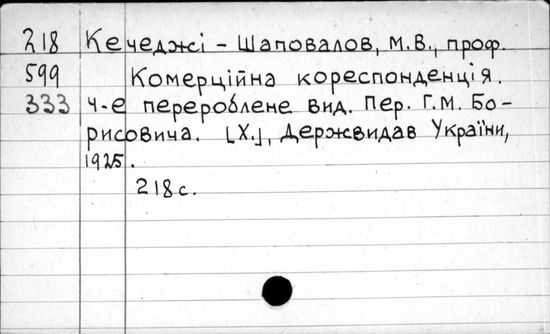 218 Кечеджі - Шаповалов, М.В., проф.
599 Комерційна кореспонденція.
333 4-е перероблене вид. Пер. Г.М. Бо-
рисовича. [Х.], Держвидав України,
1925.
218 с.